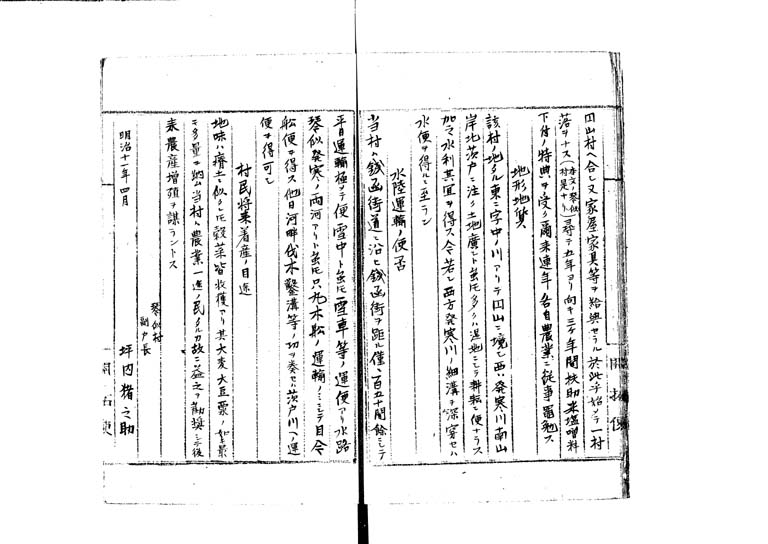 円山村ヘ合シ又家屋家具等ヲ給与セラル於此乎始メテ一村
落ヲナス（本文ノ琴似村是ナリ）尋テ五年ヨリ向キ三ヶ年間扶助米塩噌料
下付ノ特典ヲ受ク爾来連年各自農業ニ従事黽勉ス
地形地質
該村ノ地タル東ニ字中ノ川アリテ円山ニ境シ西ハ発寒川南山
岸北茨戸ニ注ク土地広シト雖𪜈多クハ湿地ニシテ耕耘ニ便ナラス
加之水利其宜ヲ得ス今若シ西方発寒川ノ細溝ヲ深穿セハ
水便ヲ得ルニ至ラン
水陸運輸ノ便否
当村ハ銭函街道ニ沿ヒ銭函街ヲ距ル僅ニ百五十間餘ニシテ
平日運輸極メテ便雪中ト雖𪜈雪車等ノ運便アリ水路
琴似発寒ノ両河アリト雖𪜈只丸木舩ノ運輸ノミニシテ目今
舩便ヲ得ス他日河畔伐木鑿溝等ノ功ヲ奏セハ茨戸川ヘノ運
便ヲ得可シ
村民将来着産ノ目途
地味ハ瘠土ニ似タレ𪜈穀菜皆収穫アリ其大麦大豆粟ノ如
キ多量ヲ納ム当村ハ農業一途ノ民タルカ故ニ益之ヲ勧奨シテ後
来農産増殖ヲ謀ラントス
明治十一年四月
琴似村
副戸長
坪内猪之助
開拓使
開拓使